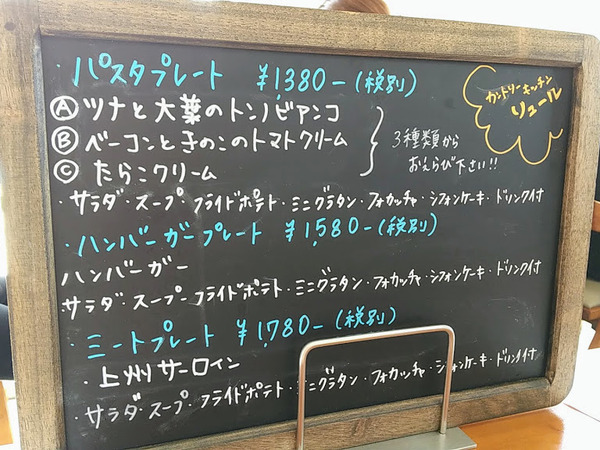 ・パスタプレート ¥1,380-(税別)
カントリーキッチン
リュール
Ⓐツナと大葉のトンノビアンコ
Ⓑベーコンときのこのトマトクリーム
Ⓒたらこクリーム
3種類から
おえらび下さい!!
・サラダ・スープ・フライドポテト・ミニグラタン・フォカッチャ・シフォンケーキ・ドリンク付
・ハンバーガープレート ¥1,580-(税別)
ハンバーガー
サラダ・スープ・フライドポテト・ミニグラタン・フォカッチャ・シフォンケーキ・ドリンク付
・ミートプレート ¥1,780-(税別)
・上州サーロイン
・サラダ・スープ・フライドポテト・ミニグラタン・フォカッチャ・シフォンケーキ・ドリンク付